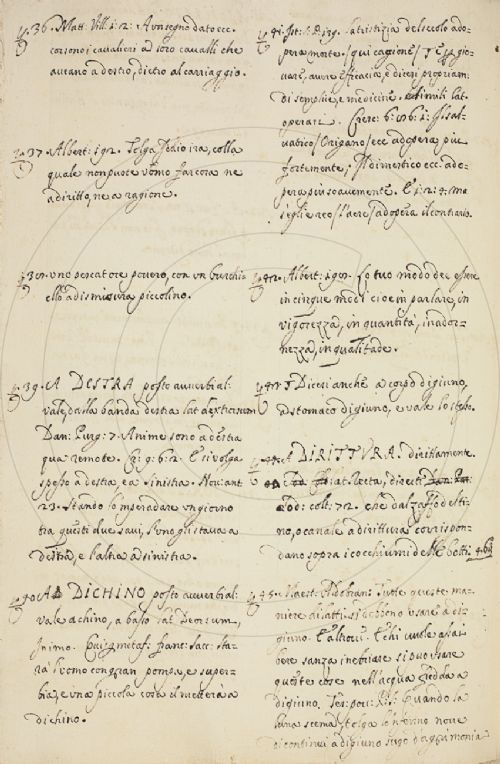 36. Matt. Vill. 1: 2: A un segno dato ecc.
corsono i cavalieri a loro cavalli che
aveano a destro, dietro al carriaggio.
37. Albert: 192. Tolga Iddio ira, colla
quale non puote uomo far cosa ne
a diritto, ne a ragione.
38. uno pescatore povero, con un burchi-
ello a dismisura piccolino.
39. A DESTRA posto avverbial:
vale, dalla banda destra lat. dextrorsum
Dan: Purg: 7. Anime sono a destra
qua remote. E si volga
spesso a destra, e a sinistra. Nov: ant
23. Stando lo imperadore un giorno
tra questi due savi, l'uno gli stava a
destra, e l'altro a sinistra.
40. A DICHINO posto avverbial:
vale a chino, a basso lat. Deorsum,
Franc: Sacc: Sta-
rà l'uomo con gran pompa, e super-
bia, e una piccola cosa il metterà a
dichino.
41. la tristizia del secolo ado-
pera morte. / qui cagione / T
vare, avere efficacia, e dicesi propriam:
di semplici, e medicine. Simili lat.
operari. Cresc: 6: sal-
vatico / Origano / ecc adopera più
fortemente; Il dimestico ecc. ado-
pera più soavemente. E 1: 2: 4: ma
s'egli è reo / l'aere / adopera il contrario.
42. Albert: Lo tuo modo dee essere
in cinque modi cioè in parlare, in
vigorezza, in quantità, in ador-
nezza, in qualitade.
43. Dicesi anche a corpo digiuno,
a stomaco digiuno, e vale lo stesso.
44. A DIRITTURA. dirittamente.
lat: Recta, directè
Sod: colt: 72. che dal zaffo desti-
no, o canale a dirittura corrispon-
dano sopra i cocchiumi delle botti.
45. Maest: Aldobran: Tutte queste ma-
niere di latti, si debbono usare a di-
giuno. E altrove: E chi vuole assai
bere sanza inebriare si può usare
queste cose nell'acqua fredda a
digiuno. Tes: pov: Quando la
luna scema, tolga lo 'nfermo nove
dì continui a digiuno sugo d'agrimonia